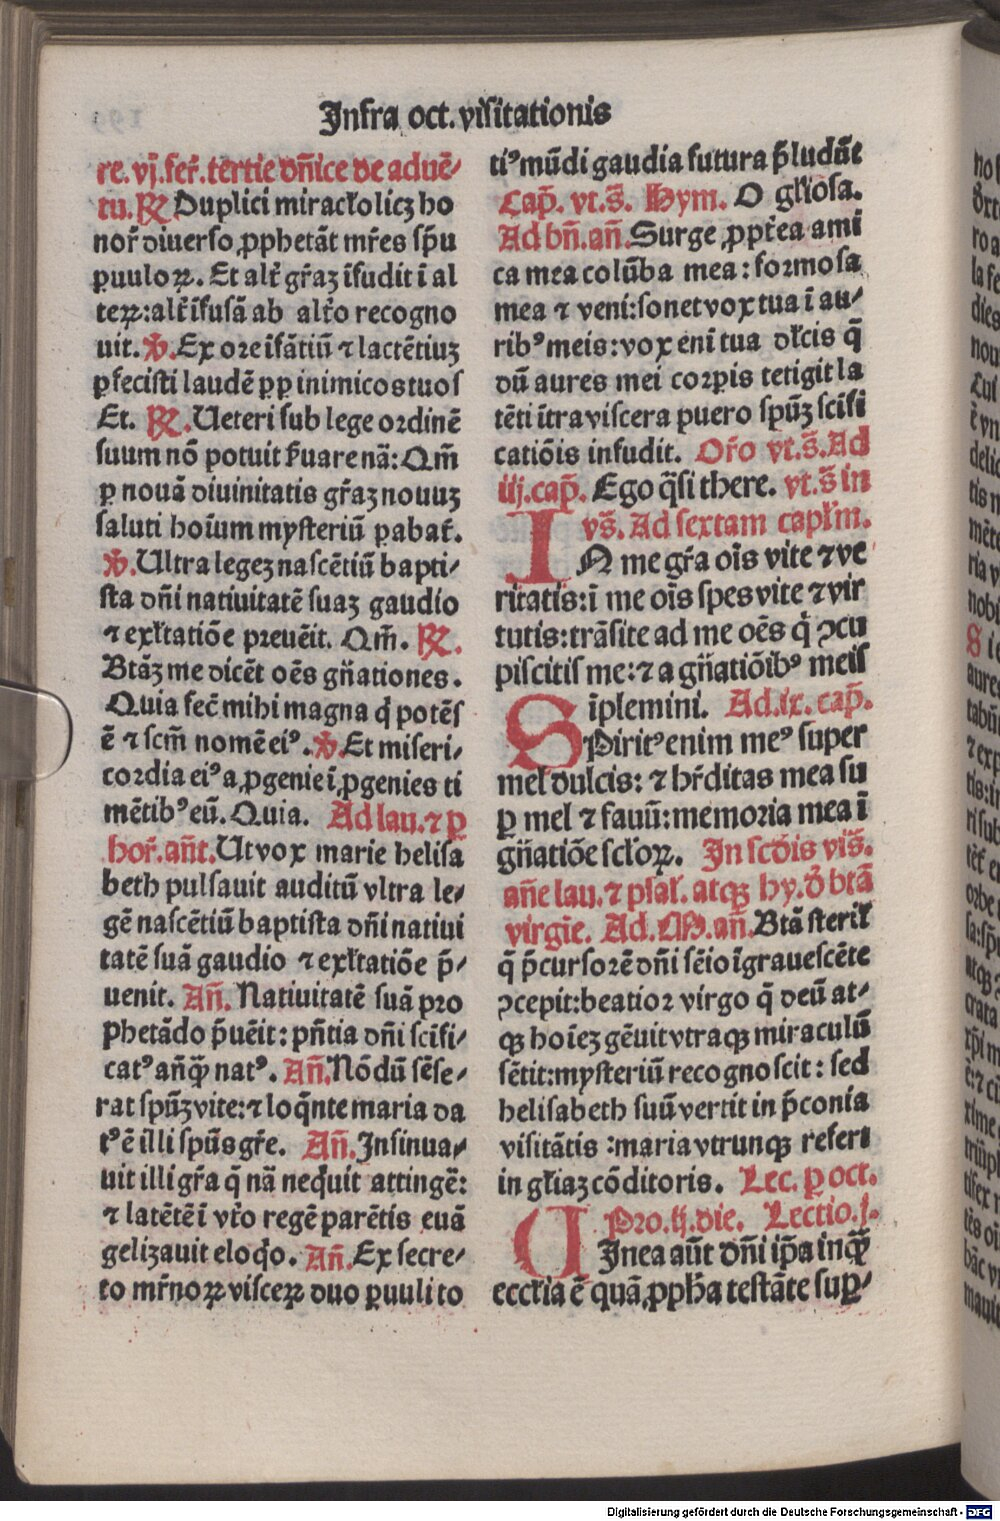 Infra oct. visitationis
re. vj. fer̃. tertie dñice de aduē⸗
tu. ℟ Duplici mirac̃lo licꝫ ho
nor̃ diuerso ꝓphetāt mr̃es sp̄u
ꝑuuloꝝ. Et alt̃ gr̃aꝫ īfudit ī al
teꝝ: alt̃ īfusā ab alt̃o recogno
uit. ℣. Ex ore īfātiū ⁊ lactētiuꝫ
ꝑfecisti laudē ꝓp inimicos tuos
Et. ℟. Ueteri sub lege ordinē
suum nō potuit ẜuare nā: Qm̄
ꝑ nouā diuinitatis gr̃aꝫ nouuꝫ
saluti hoīum mysteriū ꝑabat̃.
℣. Ultra legeꝫ nascētiū bapti⸗
sta dñi natiuitatē suaꝫ gaudio
⁊ exl̃tatiōe preuēit. Qm̄. ℟.
Btāꝫ me dicēt oēs gñationes.
Quia fec̃ mihi magna q̇ potēs
ē ⁊ scm̄ nomē eiꝰ. ℣. Et miseri⸗
cordia eiꝰ a ꝓgenie ī ꝓgenies ti
mētibꝰ eū. Quia. Ad lau. ⁊ ꝑ
hor̃. añt. Ut vox marie helisa
beth pulsauit auditū vltra le⸗
gē nascētiū baptista dñi natiui
tatē suā gaudio ⁊ exl̃tatiōe p̄⸗
uenit. Añ. Natiuitatē suā pro
phetādo p̄uēit: pñtia dñi scīfi⸗
catꝰ añꝙ̄ natꝰ. Añ. Nōdū sēse⸗
rat spūꝫ vite: ⁊ loq̄nte maria da
tꝰ ē illi spūs gr̃e. Añ. Insinua⸗
uit illi gr̃a q̄ nā neq̇uit attingē:
⁊ latētē ī vt̃o regē parētis euā
gelizauit eloq̇o. Añ. Ex secre⸗
to mr̃noꝝ visceꝝ duo ꝑuuli to
tiꝰ mūdi gaudia futura p̄ludūt
Cap̄. vt. s̄. Hym. O gl̃iosa.
Ad bñ. añ. Surge ꝓpt̃ea ami
ca mea colūba mea: formosa
mea ⁊ veni: sonet vox tua ī au⸗
ribꝰ meis: vox enī tua dl̃cis q̄
dū aures mei corꝑis tetigit la
tēti ītra viscera puero spūꝫ scīfi
catiōis infudit. Or̃o vt. s̄. Ad
iij. cap̄. Ego q̄si there. vt. s̄ in
vs̄. Ad sextam capl̃m.
IN me gr̃a oīs vite ⁊ ve
ritatis: ī me oīs spes vite ⁊ vir
tutis: trāsite ad me oēs q̇ ꝯcu
piscitis me: ⁊ a gñatiōibꝰ meis
īplemini. Ad. ix. cap̄.
SPiritꝰ enim meꝰ super
mel dulcis: ⁊ hr̃ditas mea su
ꝑ mel ⁊ fauū: memoria mea ī
gñatiōe scl̃oꝝ. In scd̄is vis̄.
añe lau. ⁊ psal̃. atqꝫ hy. ð btā
virgīe. Ad. M. añ. Btā steril̃
q̄ p̄cursorē dñi sēio īgrauescēte
ꝯcepit: beatior virgo q̄ deū at⸗
qꝫ hoīeꝫ gēuit vtraqꝫ miraculū
sētit: mysteriū recognoscit: sed
helisabeth suū vertit in p̄conia
visitātis: maria vtrunqꝫ refert
in gl̃iaꝫ cōditoris. Lec. ꝑ oct.
Pro. ij. die. Lectio. j.
UInea aūt dñi ip̄a inqꝫ̄
eccl̃ia ē quā ꝓph̄a testāte suꝑ⸗
Digitalisierung gefördert durch die Deutsche Forschungsgemeinschaft - DFG